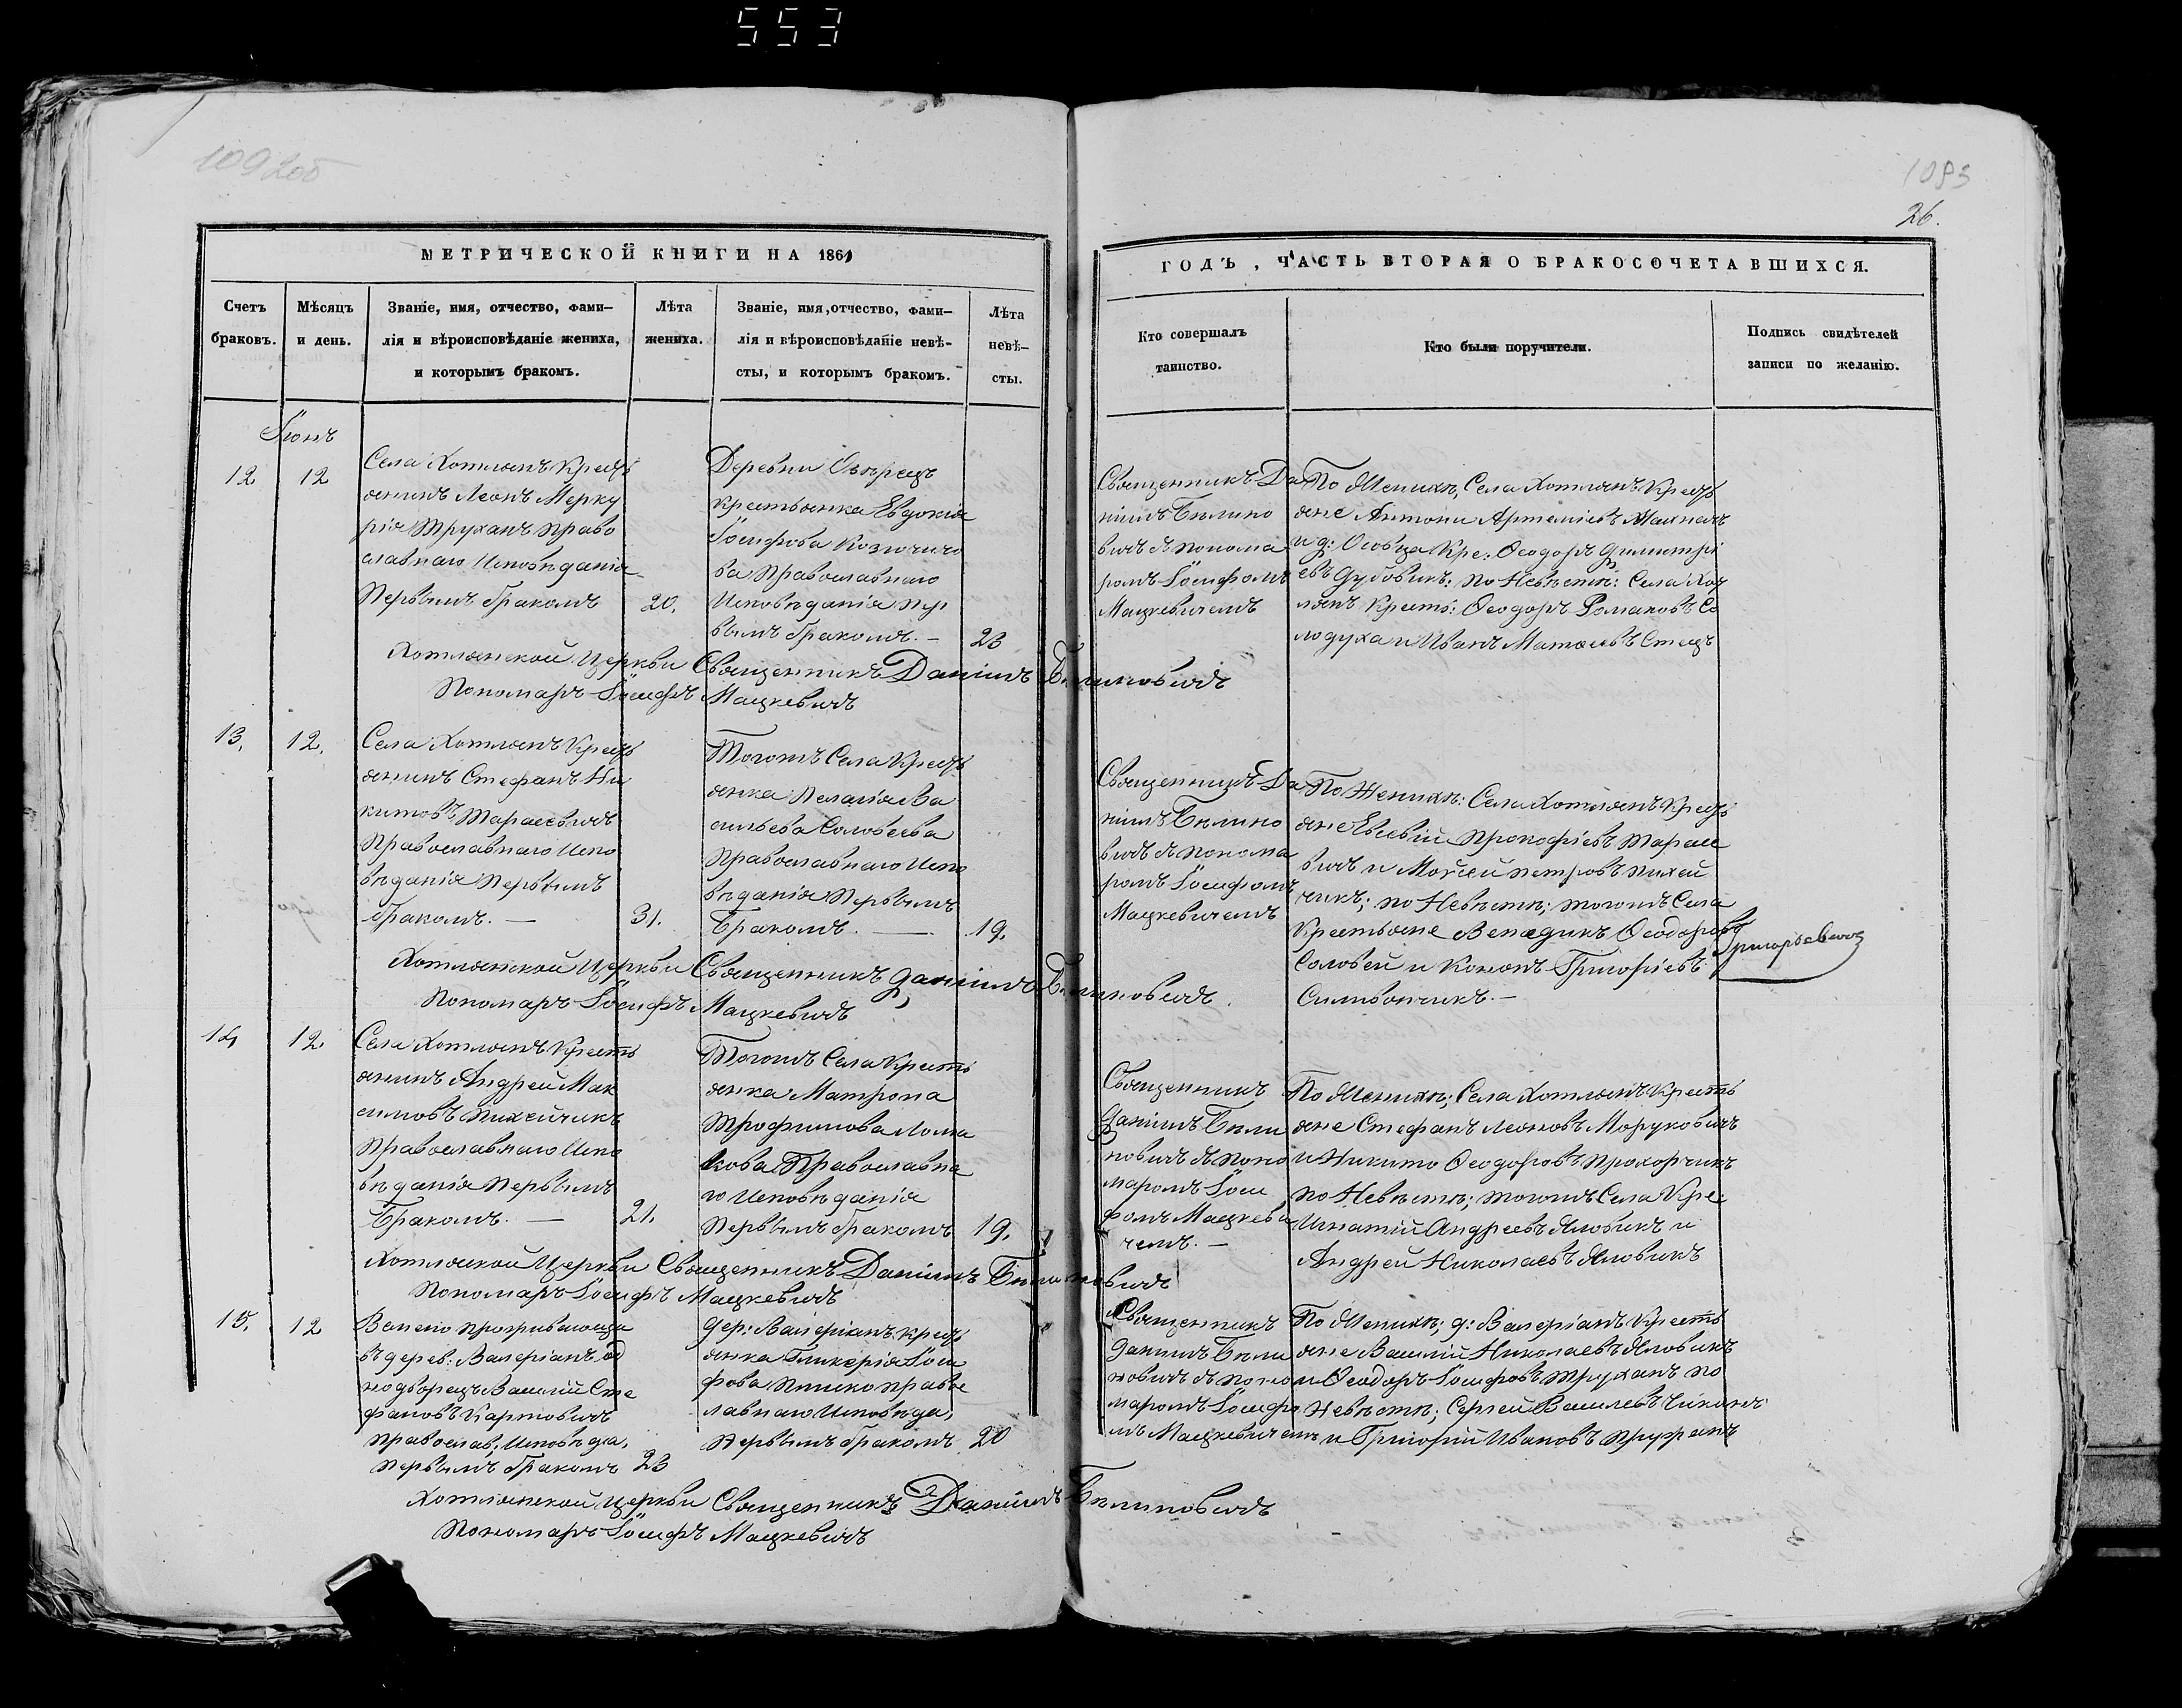 553
109 2об
1093
26.
МЕТРИЧЕСКОЙ КНИГИ НА 1861
ГОДЪ, ЧАСТЬ ВТОРАЯ О БРАКОСОЧЕТАВШИХСЯ.
Счетъ
браковъ.
Мѣсяцъ
и день.
Званіе, имя, отчество, фами–
лія и вѣроисповѣданіе жениха,
и которымъ бракомъ.
Лѣта
жениха.
Званіе, имя, отчество, фами–
лія и вѣроисповѣданіе невѣ–
сты, и которымъ бракомъ.
Лѣта
невѣ–
сты.
Кто совершалъ
таинство.
Кто были поручители.
Подпись свидѣтелей
записи по желанію.
Іюнь
12
12
Села Хотлянъ Кресть
янинъ Леонъ Мерку
рія Труханъ Право
славнаго Исповѣданія
Первымъ бракомъ
20.
Деревни
Крестьянка Евдокія
Іосифова
ва Православнаго
Исповѣданія Пер
вымъ бракомъ. –
23
Священникъ Да
ніилъ Бѣлино
вичъ съ понома
ромъ Іосифомъ
Мацкевичемъ
По Женихѣ, Села Хотлянъ Кресть
яне Антони Артеміевъ
и д: Кре: Ѳеодоръ Димитрі
евъ Дубовикъ: по Невѣстѣ: Села Хот
лянъ Кресть: Ѳеодоръ Романовъ Со
лодуха и Иванъ Матѳеевъ Стецъ
Хотлянской Церкви Священникъ Даніилъ Бѣлиновичъ
Пономаръ Іосифъ Мацкевичъ
13.
12.
Села Хотлянъ Кресть
янинъ Стефанъ Ни
китовъ Тарасевичъ
Православнаго Испо
вѣданія Первымъ
бракомъ. –
31.
Тогожъ Села Кресть
янка Пелагія Ва
сильева Соловеева
Православнаго Испо
вѣданія Первымъ
Бракомъ. –
19.
Священникъ Да
ніилъ Бѣлино
вичъ съ понома
ромъ Іосифомъ
Мацкевичемъ
По Женихѣ: Села Хотлянъ Кресть
яне Евсевій Прокофіевъ Тарасе
вичъ и Мойсей Петровъ Михей
чикъ; по Невѣстѣ; тогожъ Села
Крестьяне Венедикъ Ѳеодоровъ
Соловей и Кононъ Григоріевъ
Сильвончикъ. –
Григорьевичъ
Хотлянской Церкви Священникъ Даніилъ Бѣлиновичъ
Пономаръ Іосифъ Мацкевичъ
14
12.
Села Хотлянъ Кресть
янинъ Андрей Мак
симовъ Михейчикъ
Православнаго Испо
вѣданія Первымъ
Бракомъ. –
21.
Тогожъ Села Кресть
янка Матрона
Трофимова Лома
кова Православна
го Исповѣданія
Первымъ бракомъ
19.
Священникъ
Даніилъ Бѣли
новичъ съ поно
маромъ Іоси
фомъ Мацкеви
чемъ. –
По Женихѣ; Села Хотлянъ Кресть
яне Стефанъ Леоновъ Моруковичъ
и Никито Ѳеодоровъ Прохорчикъ
по Невѣстѣ; тогожъ Села Кре:
Игнатій Андреевъ Яловикъ и
Андрей Николаевъ Яловикъ
Хотлянской Церкви Священникъ Даніилъ Бѣлиновичъ
Пономаръ Іосифъ Мацкевичъ
15.
12
Вольно проживающи
въ дерев: Валеріанъ од
нодворецъ Василій Сте
фановъ Картовичъ
Православ. Исповѣда.
Первымъ бракомъ
23
Дер: Валеріанъ Кресть
янка Гликерія Іоси
фова Пышко Правос
лавнаго Исповѣда.
Первымъ бракомъ
20
Священникъ
Даніилъ Бѣли
новичъ съ поно
маромъ Іосифо
мъ Мацкевичемъ
По Женихѣ; д: Валеріанъ Кресть
яне Василій Николаевъ Яловикъ
и Ѳеодоръ Іосифовъ Труханъ по
Невѣстѣ; Сергей Васильевъ
и Григорій Ивановъ Труханъ
Хотлянской Церкви Священникъ Даніилъ Бѣлиновичъ
Пономаръ Іосифъ Мацкевичъ